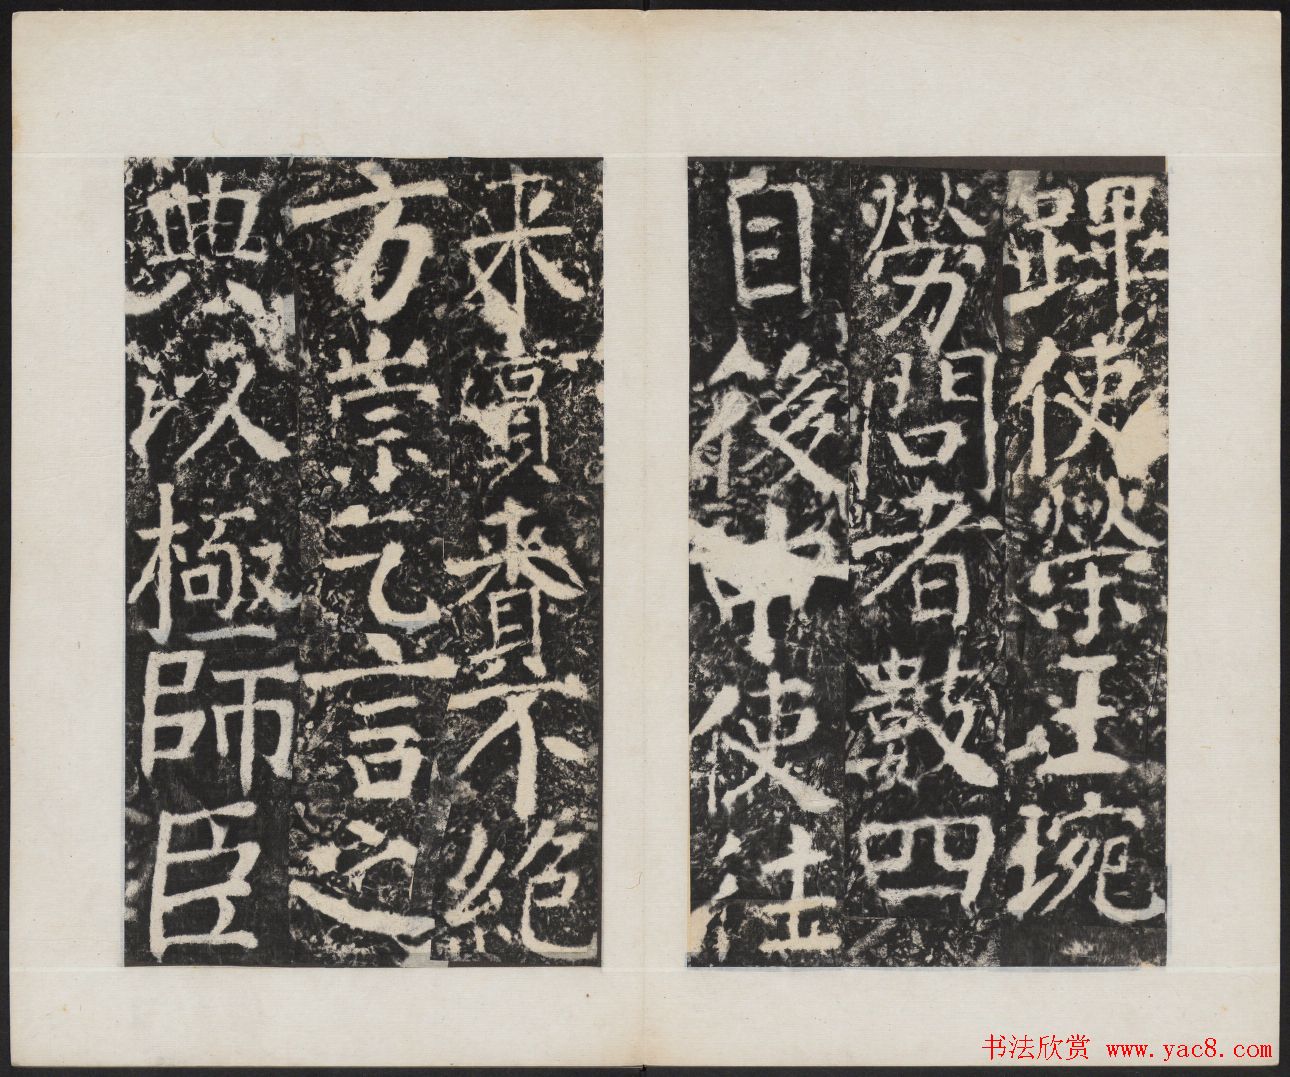 蹕使榮王琬
勞問者數四
自後中使往
來賞賚不絕
方崇乞言之
典以極師臣
书法欣赏 www.yac8.com